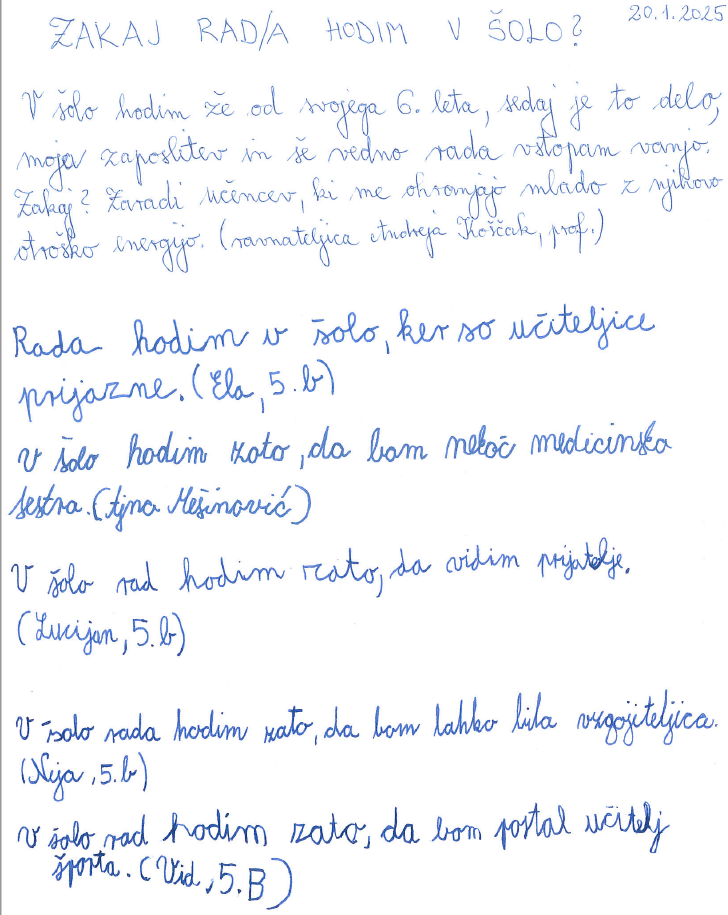 20.1.2025
ZAKAJ RAD/A HODIM V ŠOLO?
V šolo hodim že od svojega 6. leta, sedaj je to delo,
moja zaposlitev in še vedno rada vstopam vanjo.
Zakaj? Zaradi učencev, ki me ohranjajo mlado z njihovo
otroško energijo. (ravnateljica Andreja Koščak, prof.)
Rada hodim v šolo, ker so učiteljice
prijazne. (Ela, 5. b)
V šolo hodim zato, da bom nekoč medicinska
sestra. (Ajna Mešinović)
V šolo rad hodim zato, da vidim prijatelje.
(Lucijan, 5. b)
V šolo rada hodim zato, da bom lahko bila vzgojiteljica.
(Neja, 5. b)
V šolo rad hodim zato, da bom postal učitelj
športa. (Vid, 5. B)